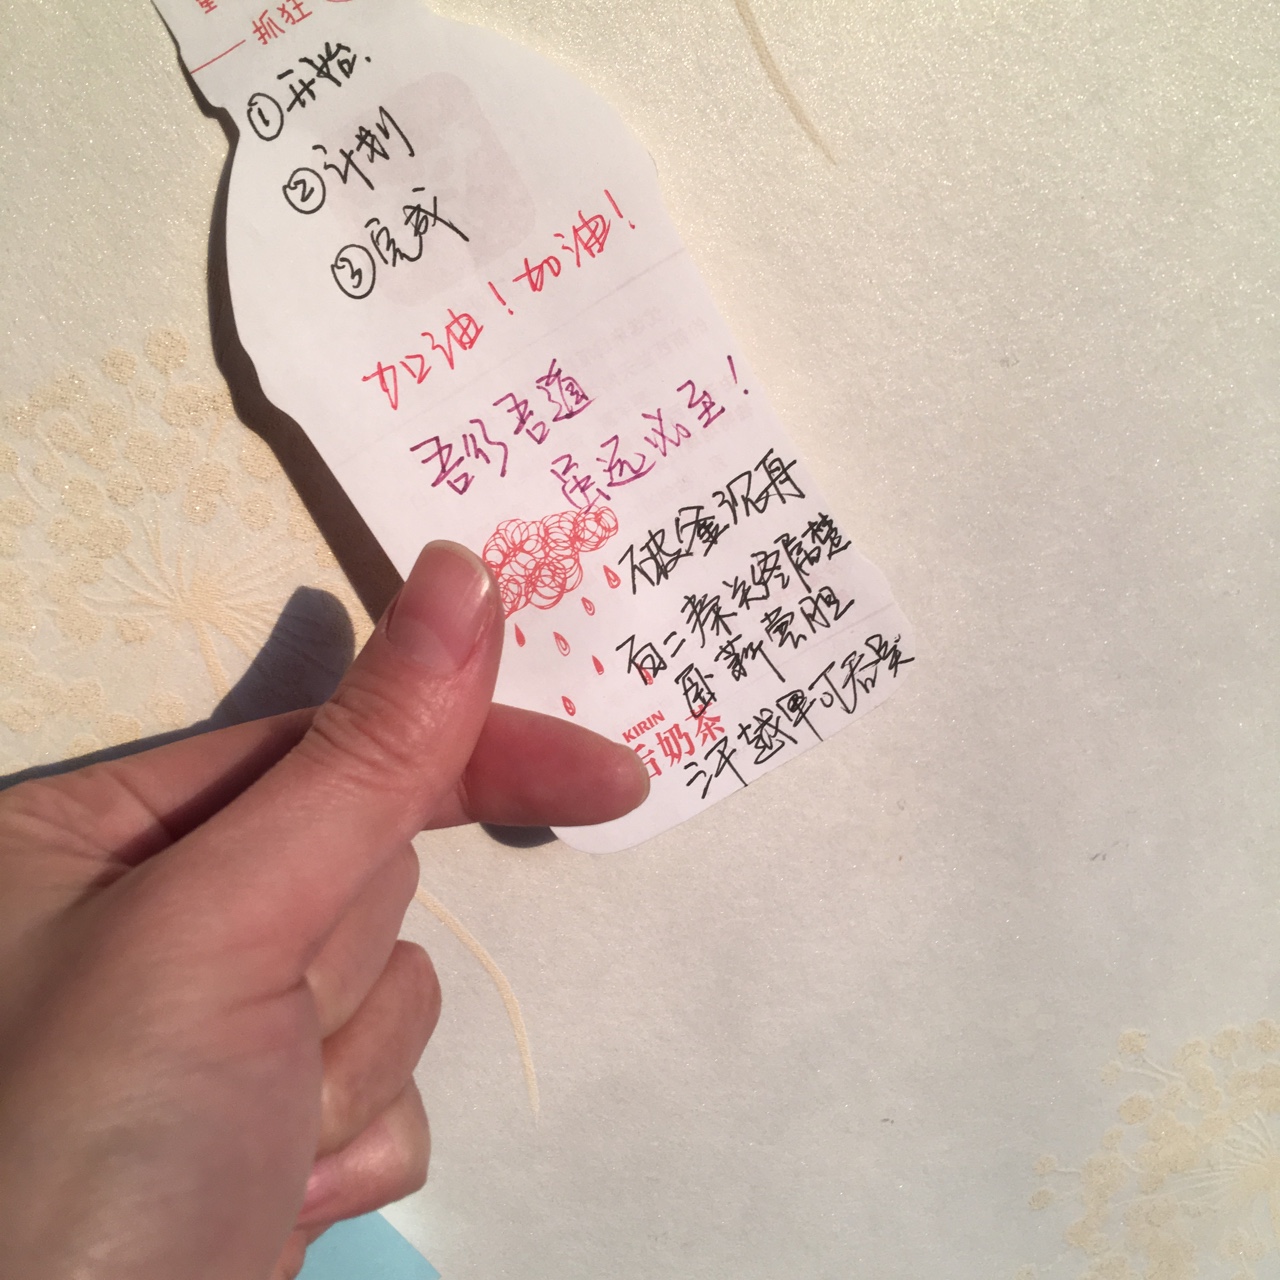 抓狂
①开始.
②计划
③完成
加油！加油！
吾行吾道
虽远必至！
破釜沉舟
百二秦关终属楚
卧薪尝胆
三千越甲可吞吴
KIRIN
后奶茶